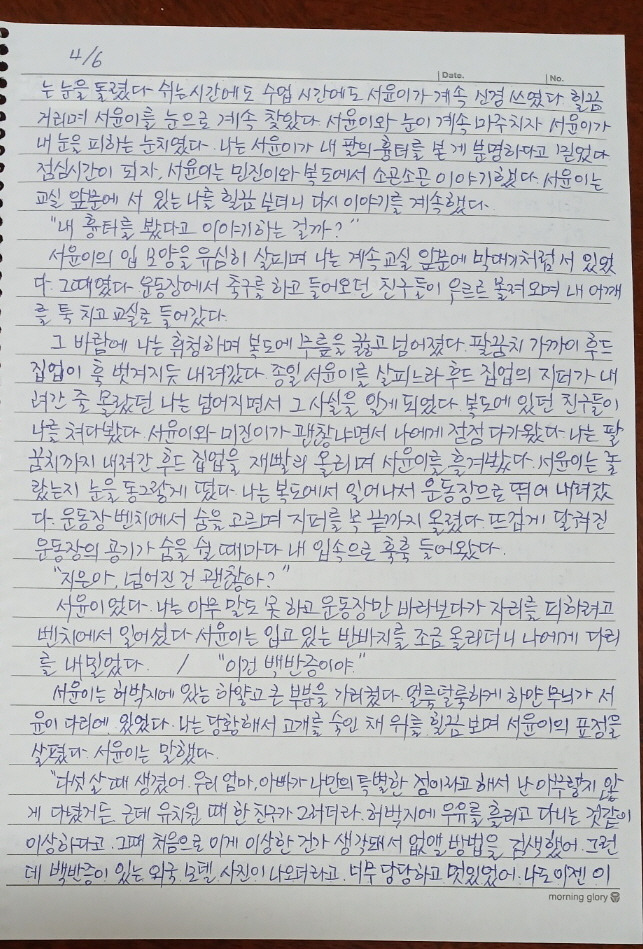 4/6
Date.
No.
는 눈을 돌렸다. 쉬는시간에도 수업 시간에도 서윤이가 계속 신경 쓰였다. 힐끔
거리며 서윤이를 눈으로 계속 찾았다. 서윤이와 눈이 계속 마주치자 서윤이가
내 눈을 피하는 눈치였다. 나는 서윤이가 내 팔의 흉터를 본 게 분명하다고 믿었다
점심시간이 되자, 서윤이는 민진이와 복도에서 소곤소곤 이야기했다. 서윤이는
교실 앞문에 서 있는 나를 힐끔 보더니 다시 이야기를 계속했다.
"내 흉터를 봤다고 이야기하는 걸까?"
서윤이의 입 모양을 유심히 살피며 나는 계속 교실 앞문에 막대기처럼 서 있었
다. 그때였다. 운동장에서 축구를 하고 들어오던 친구들이 우르르 몰려오며 내 어깨
를 툭 치고 교실로 들어갔다.
그 바람에 나는 휘청하며 복도에 무릎을 꿇고 넘어졌다. 팔꿈치 가까이 후드
집업이 훅 벗겨지듯 내려갔다. 종일 서윤이를 살피느라 후드 집업의 지퍼가 내
려간 줄 몰랐던 나는 넘어지면서 그 사실을 알게 되었다. 복도에 있던 친구들이
나를 쳐다봤다. 서윤이와 미진이가 괜찮냐면서 나에게 점점 다가왔다. 나는 팔
꿈치까지 내려간 후드 집업을 재빨리 올리며 서윤이를 흘겨봤다. 서윤이는 놀
랐는지 눈을 동그랗게 떴다. 나는 복도에서 일어나서 운동장으로 뛰어 내려갔
다. 운동장 벤치에서 숨을 고르며 지퍼를 목 끝까지 올렸다. 뜨겁게 달궈진
운동장의 공기가 숨을 쉴 때마다 내 입속으로 훅훅 들어왔다.
"지은아, 넘어진 건 괜찮아?"
서윤이었다. 나는 아무 말도 못 하고 운동장만 바라보다가 자리를 피하려고
벤치에서 일어섰다. 서윤이는 입고 있는 반바지를 조금 올리더니 나에게 다리
를 내밀었다. / "이건 백반증이야."
서윤이는 허벅지에 있는 하얗고 큰 부분을 가리켰다. 얼룩덜룩하게 하얀 무늬가 서
윤이 다리에 있었다. 나는 당황해서 고개를 숙인 채 위를 힐끔 보며 서윤이의 표정을
살폈다. 서윤이는 말했다.
"다섯 살 때 생겼어. 우리 엄마, 아빠가 나만의 특별한 점이라고 해서 난 아무렇지 않
게 다녔거든. 근데 유치원 때 한 친구가 그러더라. 허벅지에 우유를 흘리고 다니는 것같이
이상하다고. 그때 처음으로 이게 이상한 건가 생각돼서 없앨 방법을 검색했어. 그런
데 백반증이 있는 외국 모델 사진이 나오더라고. 너무 당당하고 멋있었어. 나도 이젠 이
morning glory